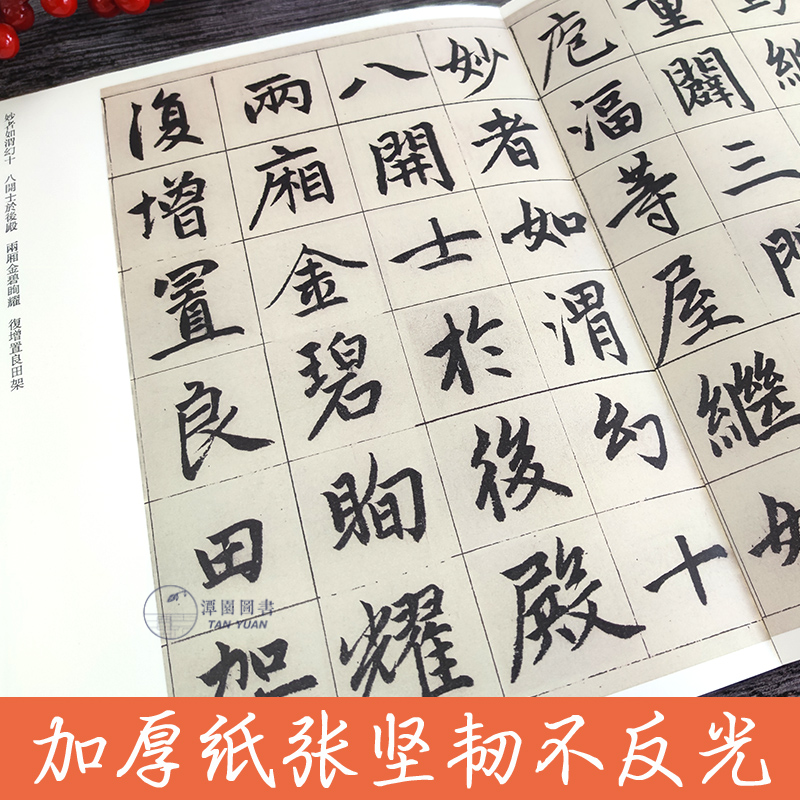 重闢三門
庖湢等屋繼
妙者如渭幻十
八開士於後殿
兩廂金碧眴耀
復增置良田架
妙者如渭幻十　八開士於後殿　兩廂金碧眴耀　復增置良田架
潭園圖書
TAN YUAN
加厚纸张坚韧不反光